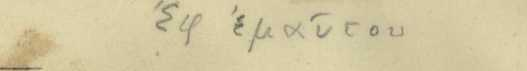 ἐφ ἐμαῦτου